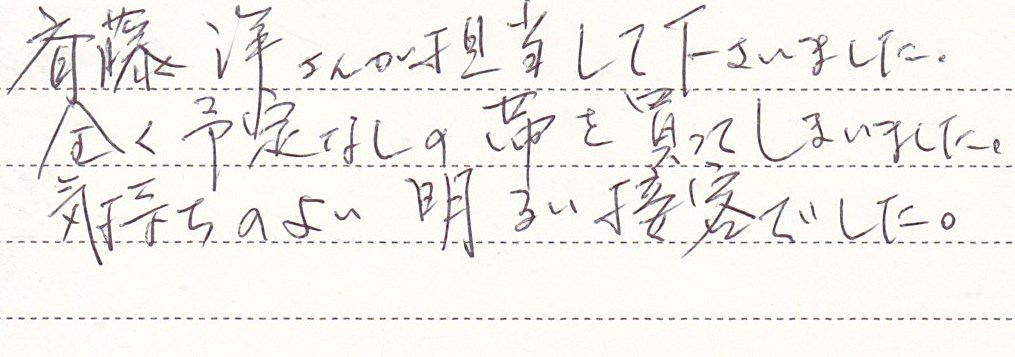 斉藤洋さんが担当して下さいました。
全く予定なしの帯を買ってしまいました。
気持ちのよい明るい接客でした。